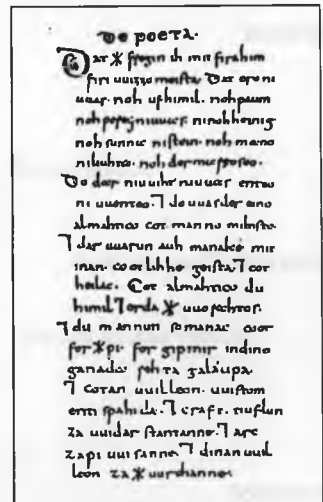 De poeta.
Dat * fregin ih mit firahim
firi uuizzo meista. Dat ero ni
uuas. noh ufhimil. noh paum
noh pereg ni uuas. ninohheinig
noh sunna nistein. noh mano
niliuhta. noh der mareo seo.
Do dar niuuiht niuuas enteo
ni uuenteo. ⁊ do uuas der eino
almahtico cot manno miltisto.
⁊ dar uuarun auh manake mit
inan. cootlihhe geista. ⁊ cot
heilac. Cot almahtico du
himil ⁊ erda * uuorahtos.
⁊ du mannun so manac coot
for * pi. for gipmir indino
ganada rehta galaupa.
⁊ cotan uuilleon. uuistom
enti spahida. ⁊ craft. tiuflun
za uuidar stantanne. ⁊ arc
zapi uuisanne. ⁊ dinan uuil
leon za * uurchanne.